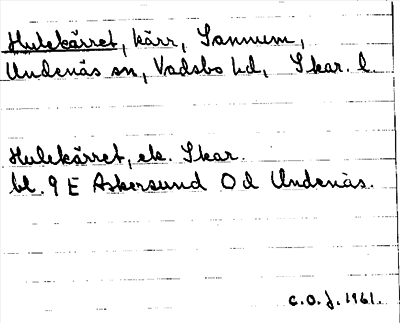 Hulekärret, kärr, Sannum,
Undenäs sn, Vadsbo hd, Skar. l.
Hulekärret, ek. Skar.
bl. 9 E Askersund Od Undenäs.
C.O.J. 1961.